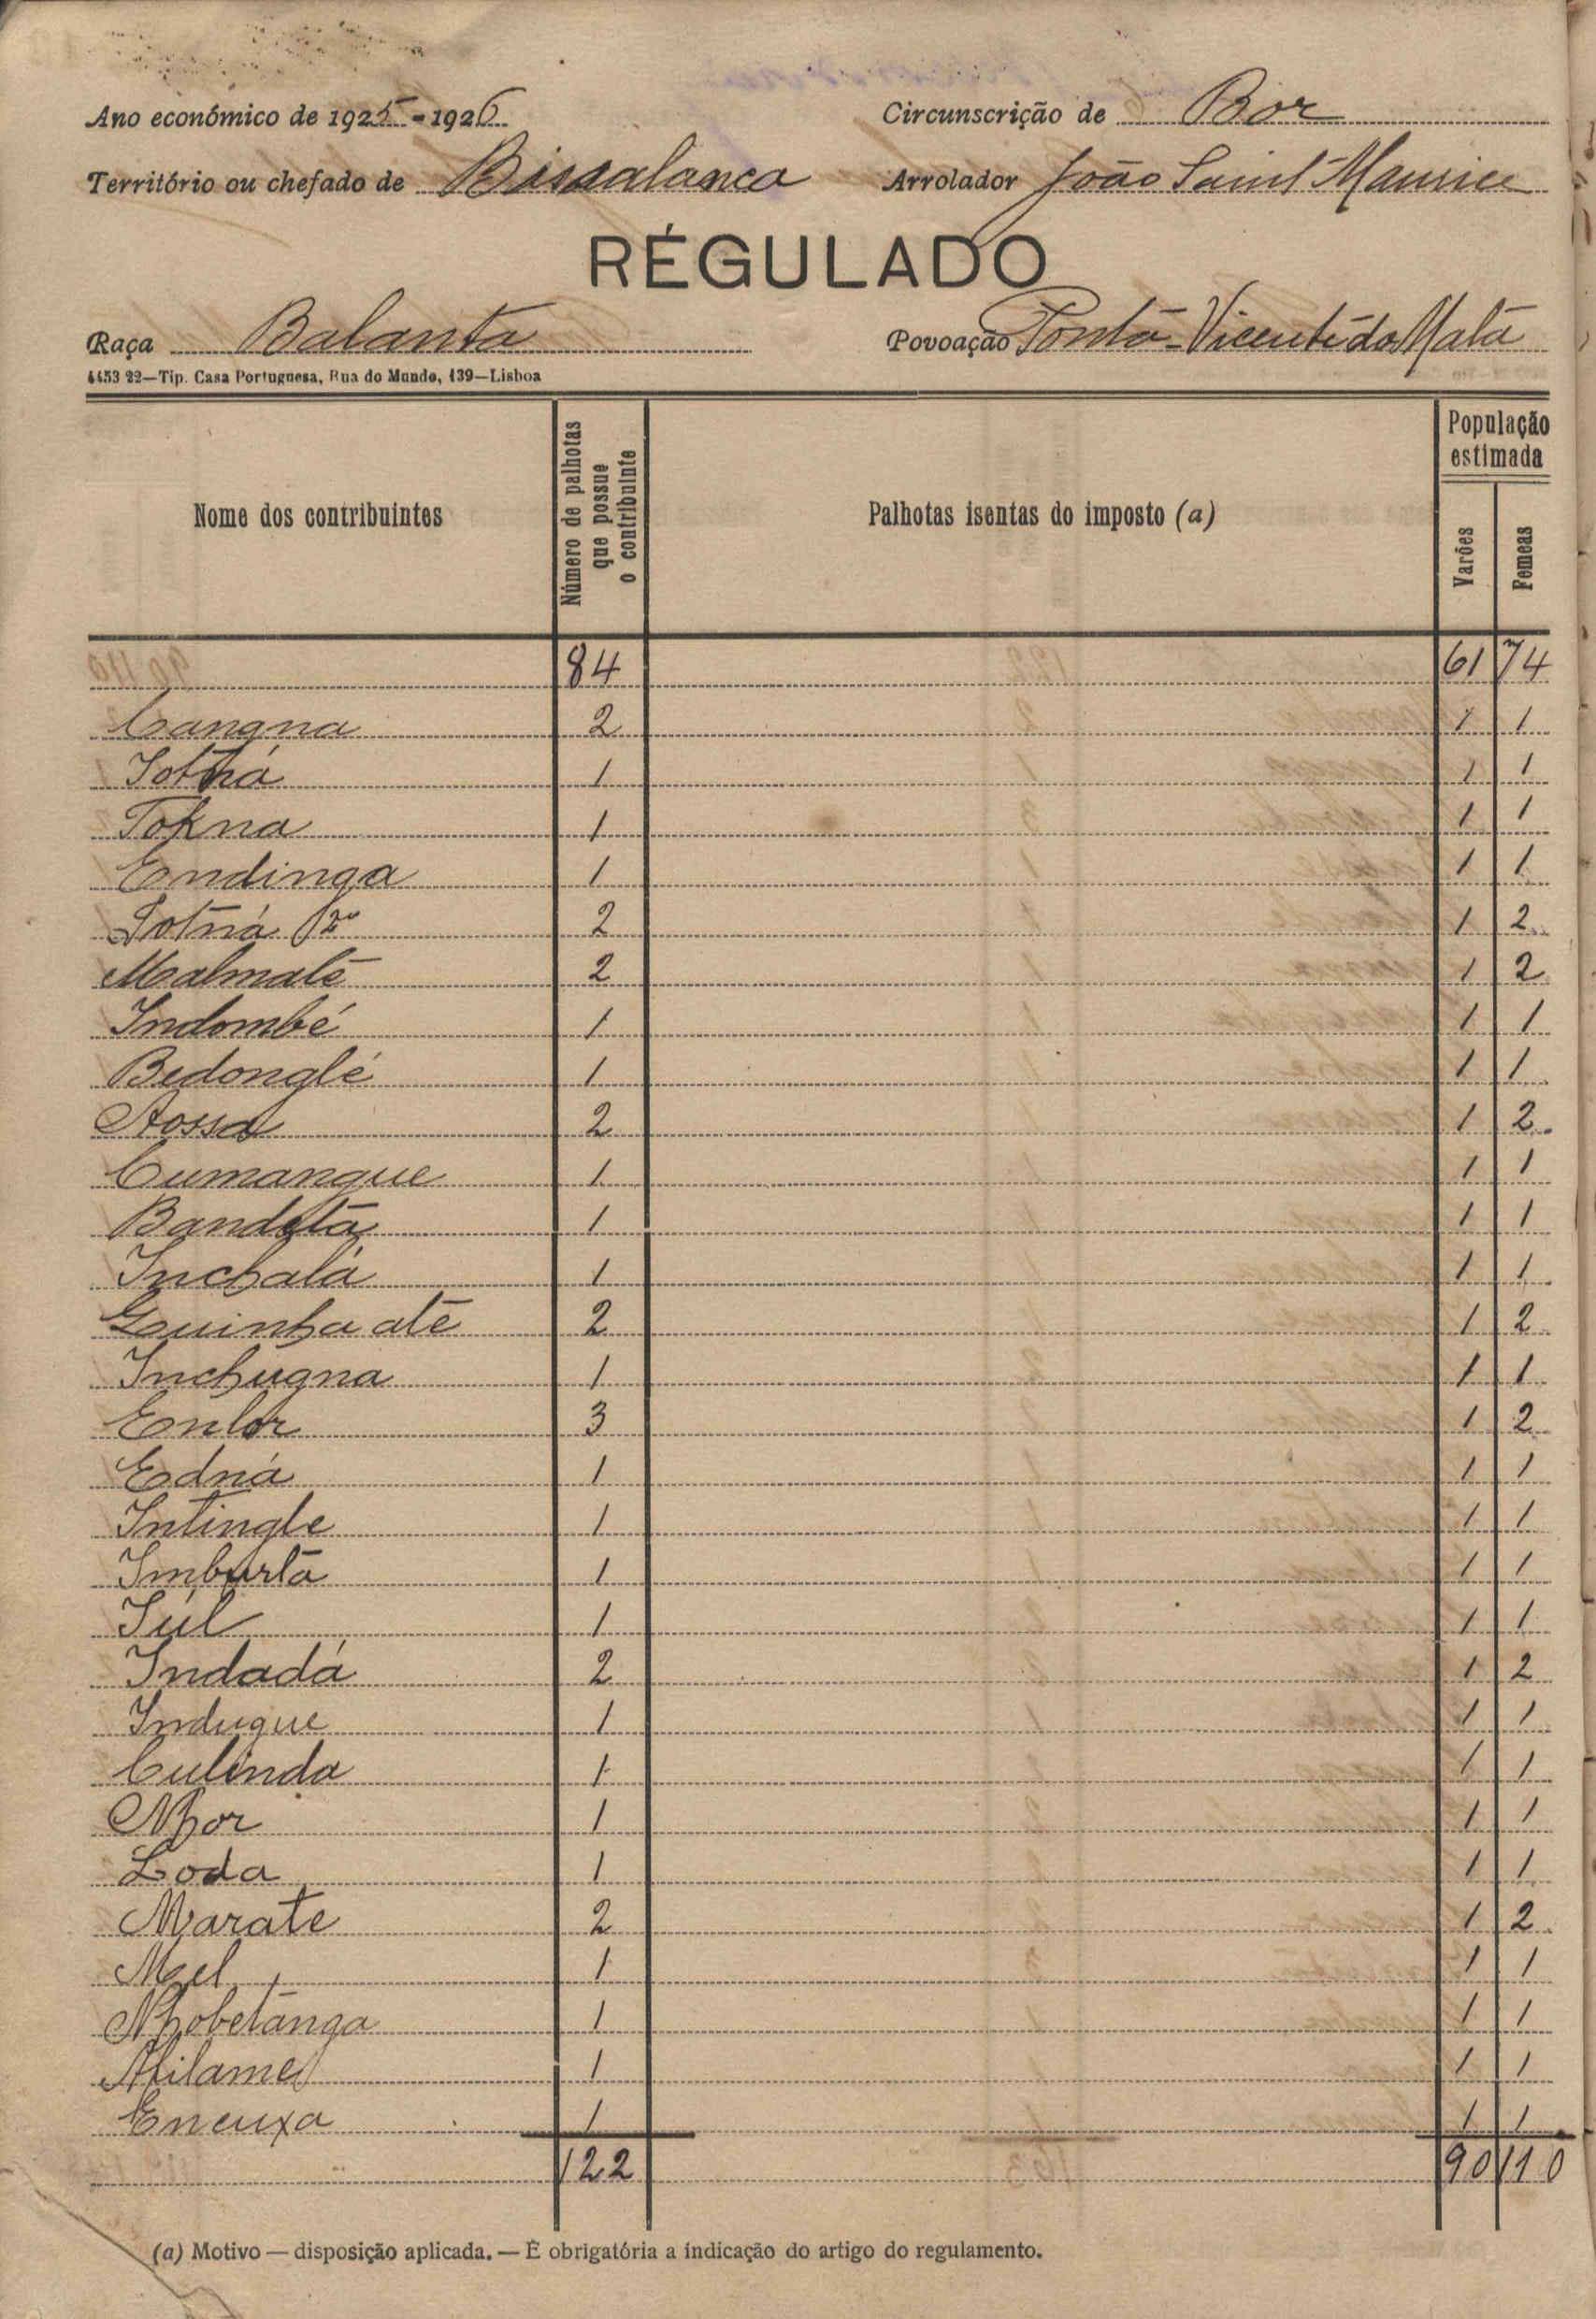 Ano económico de 1925-1926
Circunscrição de Bor
Território ou chefado de Bissalanca
Arrolador João Saint Maurice
RÉGULADO
Raça Balanta
Povoação Ponta-Vicente da Mata
4453 22—Tip. Casa Portuguesa, Rua do Mundo, 139—Lisboa
Nome dos contribuintes
Número de palhotas que possue o contribuinte
Palhotas isentas do imposto (a)
População estimada
Varões
Femeas
84 61 74
Cangna 2 1 1
Totná 1 1 1
Tokna 1 1 1
Endinga 1 1 1
Totná 2º 2 1 2
Malmaté 2 1 2
Indombé 1 1 1
Bedonglé 1 1 1
Aossa 2 1 2
Cumangue 1 1 1
1 1 1
Inchalá 1 1 1
Guinha até 2 1 2
Inchugna 1 1 1
Enlor 3 1 2
Edná 1 1 1
Intingle 1 1 1
Imburtá 1 1 1
1 1 1
Indadá 2 1 2
Indugue 1 1 1
Culinda 1 1 1
Nhor 1 1 1
Loda 1 1 1
Marate 2 1 2
Mel 1 1 1
Nhobetanga 1 1 1
1 1 1
Encuxa 1 1 1
122 90 110
(a) Motivo — disposição aplicada. — É obrigatória a indicação do artigo do regulamento.